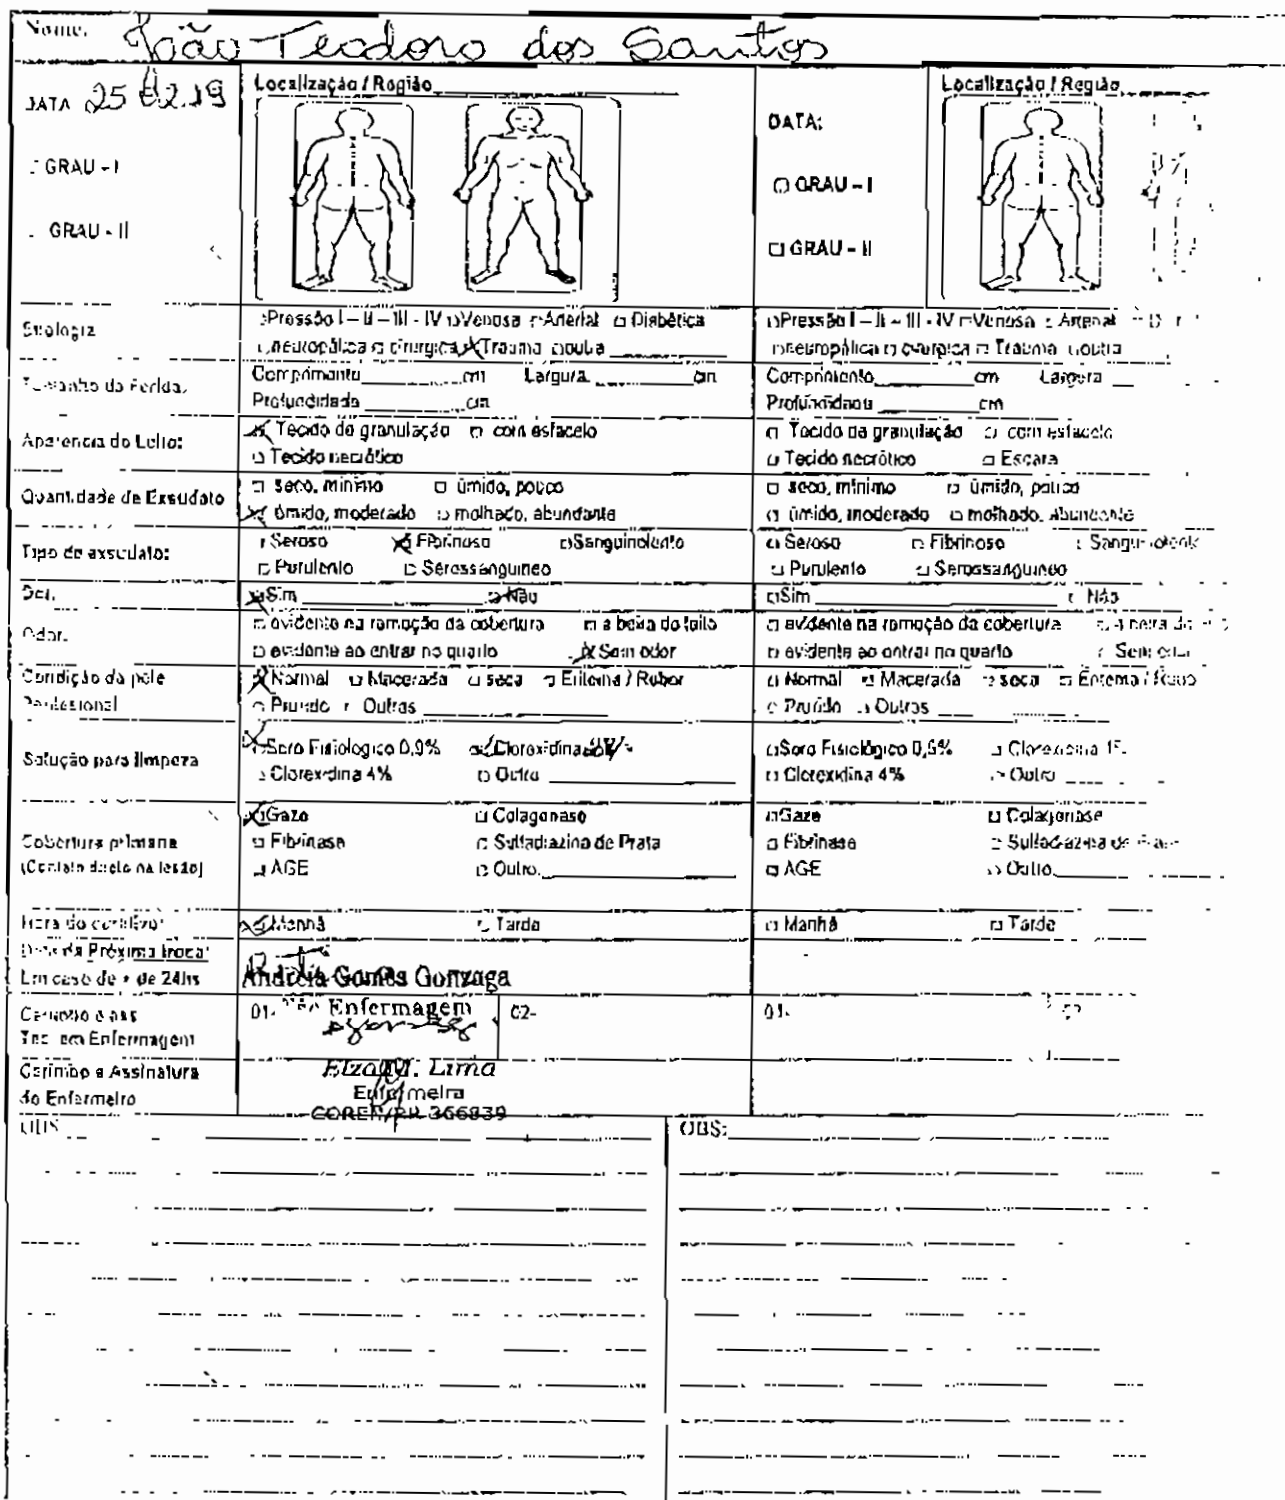 Nome. João Teodoro dos Santos
DATA 25 02.19
Localização / Região
GRAU - I
GRAU - II
DATA:
Localização / Região
GRAU - I
GRAU - II
Etiologia
Pressão I – II – III - IV Venosa Arterial Diabética
neuropática cirurgica Trauma outra
Pressão I – II – III - IV Venosa Arterial
neuropática cirurgica Trauma outra
Tamanho da Ferida.
Comprimento cm Largura cm
Profundidade cm
Comprimento cm Largura
Profundidade cm
Aparencia do Leito:
Tecido de granulação com esfacelo
Tecido necrótico
Tecido de granulação com esfacelo
Tecido necrótico Escara
Quantidade de Exsudato
seco, mínimo úmido, pouco
úmido, moderado molhado, abundante
seco, mínimo úmido, pouco
úmido, moderado molhado, abundante
Tipo de exsudato:
Seroso Fibrinoso Sanguinolento
Purulento Serossanguineo
Seroso Fibrinoso Sanguinolento
Purulento Serossanguineo
Dor.
Sim Não
Sim Não
Odor.
evidente na remoção da cobertura a beira do leito
evidente ao entrar no quarto Sem odor
evidente na remoção da cobertura a beira do
evidente ao entrar no quarto Sem odor
Condição da pele
Perilesional
Normal Macerada seca Eritema / Rubor
Prurido Outras
Normal Macerada seca Eritema / Rubo
Prurido Outros
Solução para limpeza
Soro Fisiológico 0,9% Clorexidina
Clorexidina 4% Outro
Soro Fisiológico 0,9% Clorexidina 1%
Clorexidina 4% Outro
Cobertura primaria
(Contato direto na lesão)
Gaze Colagenase
Fibrinase Sulfadiazina de Prata
AGE Outro.
Gaze Colagenase
Fibrinase Sulfadiazina de
AGE Outro.
Hora do curativo:
Manhã Tarde
Manhã Tarde
Data da Próxima troca:
Em caso de + de 24hs
Andréia Gomes Gonzaga
Enfermagem
Carimbo e ass
Tec. em Enfermagem
01- 02-
01-
Carimbo e Assinatura
do Enfermeiro
Elza M. Lima
Enfermeira
COREN/PR 366839
OBS
OBS: